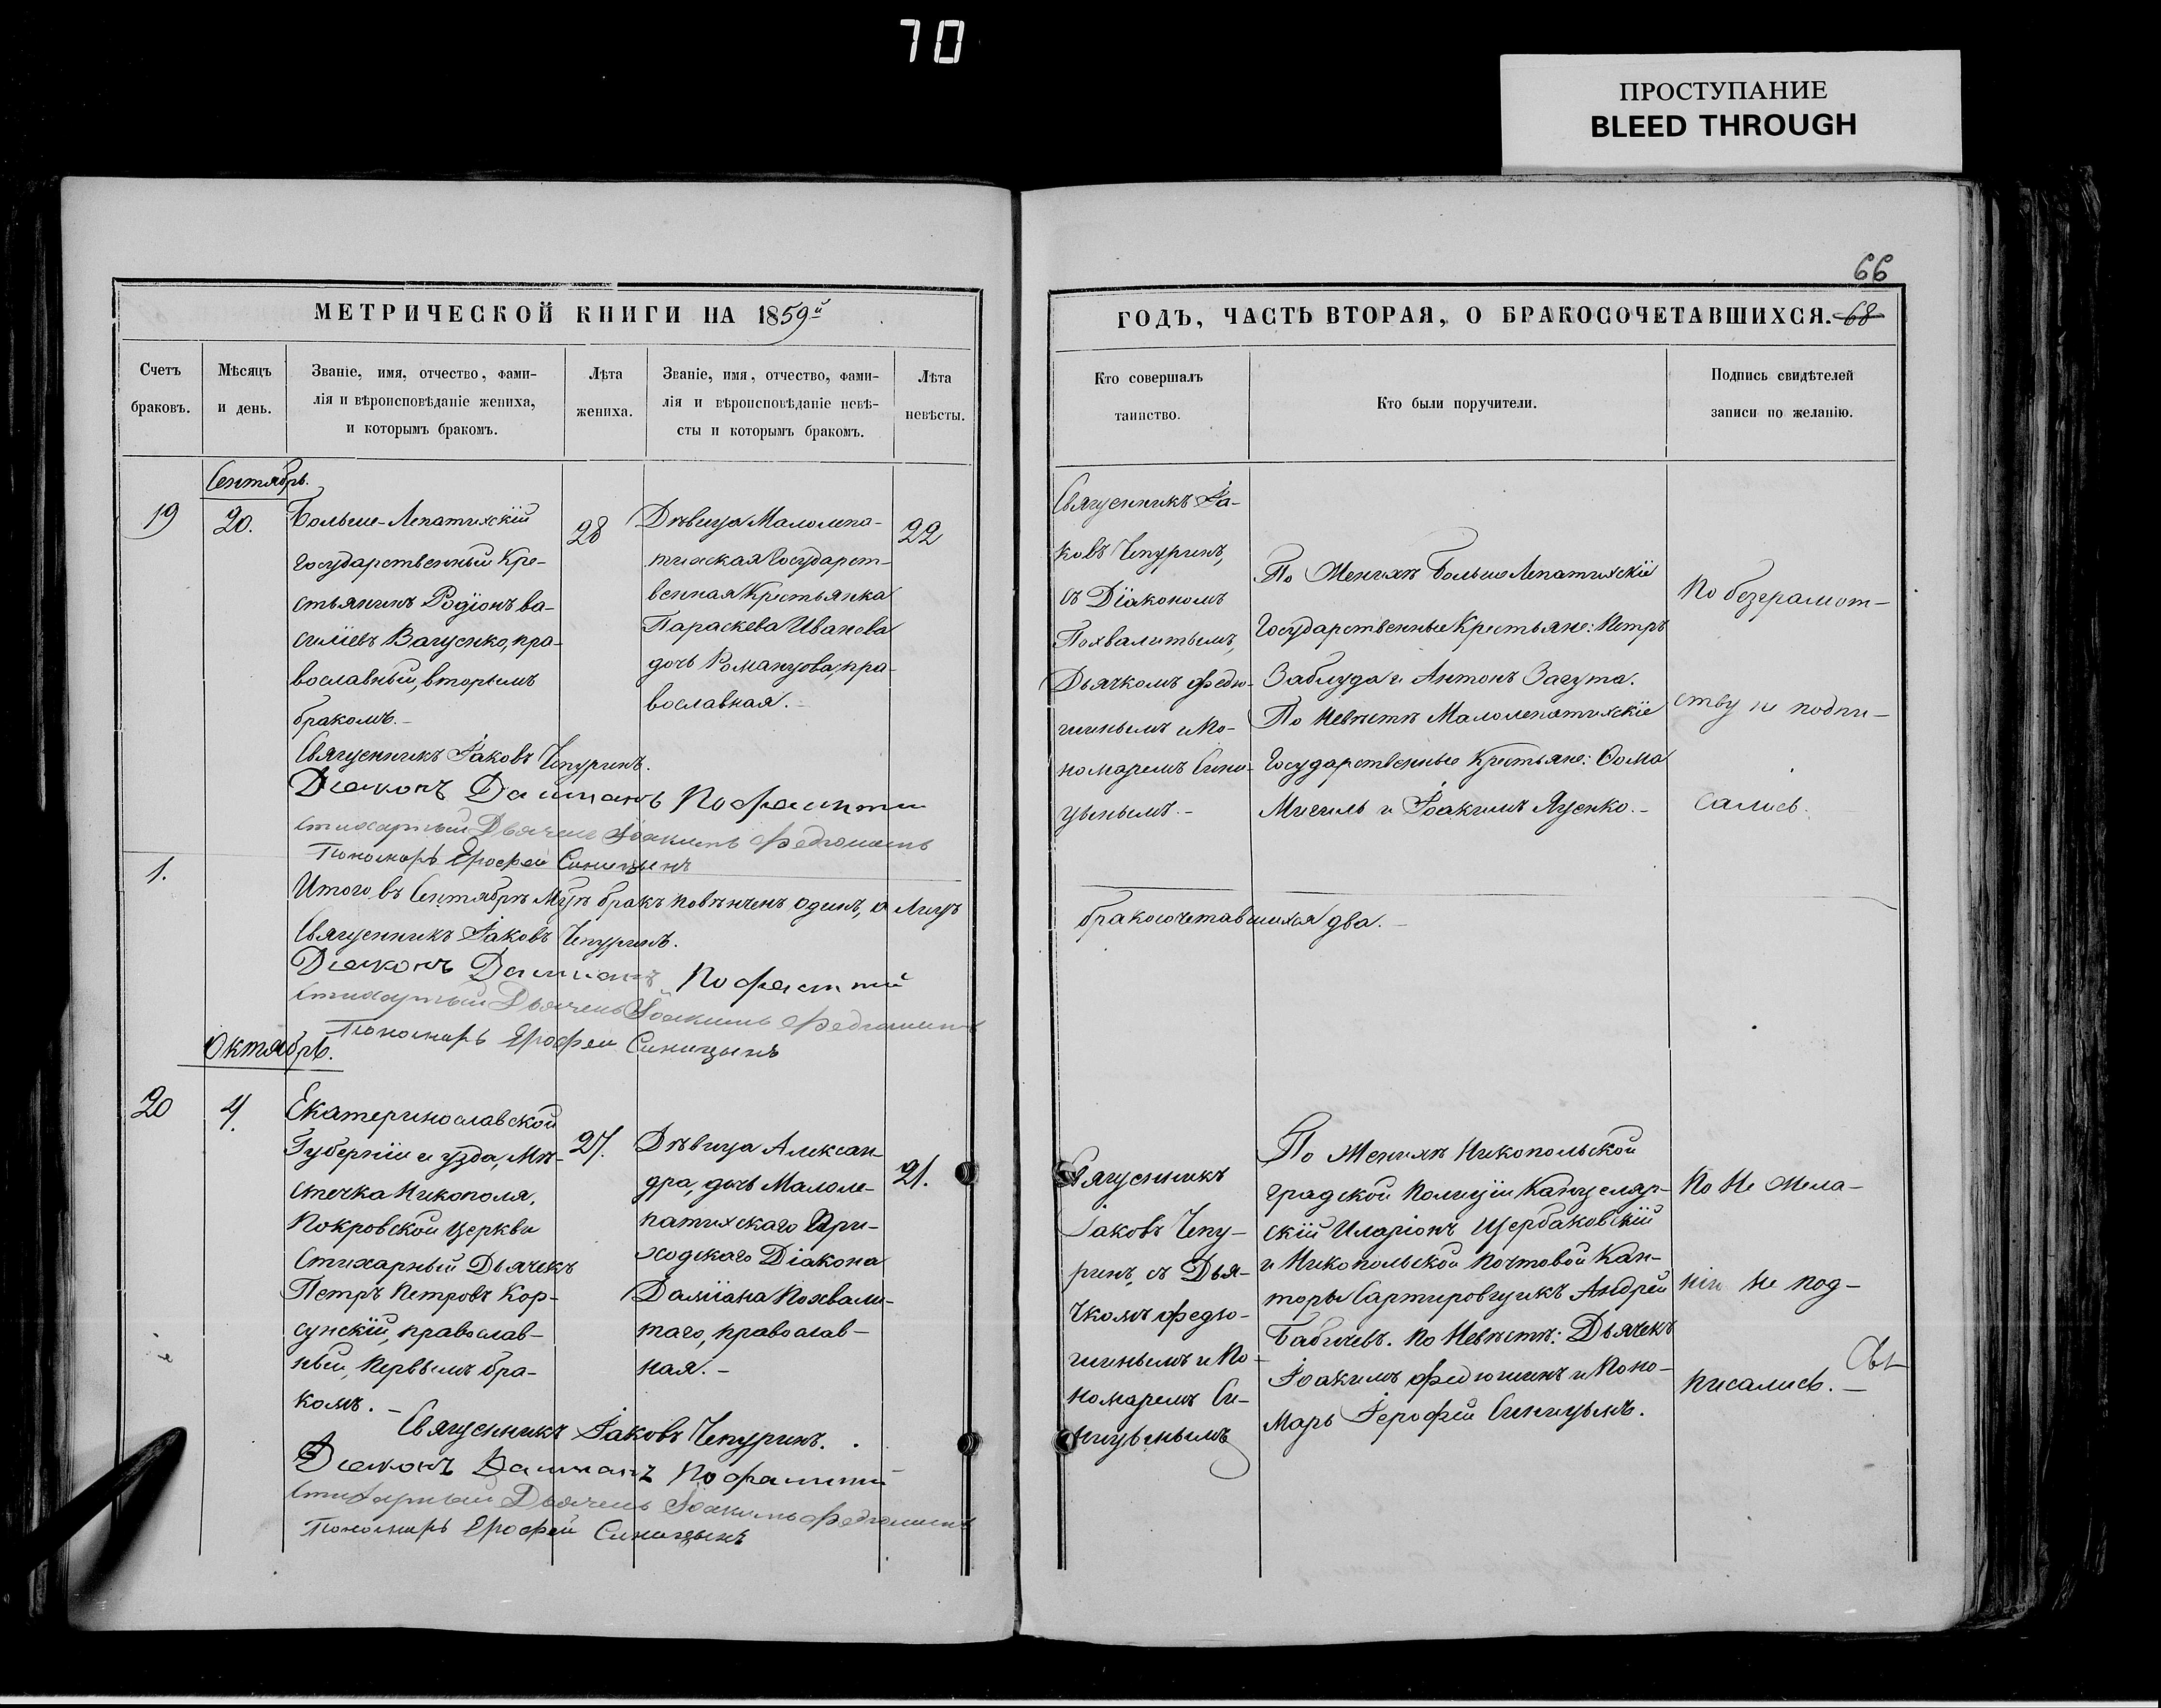 70
ПРОСТУПАНИЕ
BLEED THROUGH
66
МЕТРИЧЕСКОЙ КНИГИ НА 1859й
ГОДЪ, ЧАСТЬ ВТОРАЯ, О БРАКОСОЧЕТАВШИХСЯ. 68
Счетъ
браковъ.
Мѣсяцъ
и день.
Званіе, имя, отчество, фами-
лія и вѣроисповѣданіе жениха,
и которымъ бракомъ.
Лѣта
жениха.
Званіе, имя, отчество, фами-
лія и вѣроисповѣданіе невѣ-
сты и которымъ бракомъ.
Лѣта
невѣсты.
Кто совершалъ
таинство.
Кто были поручители.
Подпись свидѣтелей
записи по желанію.
Сентябрь.
19
20.
Больше-Лепатихскій
государственный Кре-
стьянинъ Родіонъ Ва-
силіевъ Ваценко, пра-
вославный, вторымъ
бракомъ.-
28
Дѣвица Малолепа-
тихская Государст-
венная Крестьянка
Параскева Иванова
дочь Романцова, пра-
вославная.-
22
Священникъ Іа-
ковъ Чепуринъ,
съ Діакономъ
Похвалитымъ,
Дьячкомъ Федю-
шинымъ и По-
номаремъ Сини-
цынымъ.-
По Женихѣ Больше Лепатихскіе
Государственные Крестьяне: Петръ
Заблуда и Антонъ Загута.
По Невѣстѣ Малолепатихскіе
Государственные Крестьяне: Фома
Мигиль и Іоакимъ Яценко.-
По безграмот-
ству не подпи-
сались.
Священникъ Іаковъ Чепуринъ.
Діаконъ Даміанъ
Стихарный Дьячекъ Іоакимъ Федюшинъ
Пономарь Ерофей Синицынъ
1.
Итого въ Сентябрѣ Мцѣ бракъ повѣнченъ одинъ, а Лицъ
бракосочетавшихся два.-
Священникъ Іаковъ Чепуринъ.
Діаконъ Даміанъ
Стихарный Дьячекъ Іоакимъ Федюшинъ
Пономарь Ерофей Синицынъ
Октябрь.
20
4.
Екатеринославской
Губерніи и уѣзда, Мѣ-
стечка Никополя,
Покровской Церкви
Стихарный Дьячекъ
Петръ Петровъ Кор-
сунскій, православ-
ный, первымъ бра-
комъ.-
27.
Дѣвица Алексан-
дра, дочь Малоле-
патихскаго При-
ходскаго Діакона
Даміана Похвали-
таго, православ-
ная.-
21.
Священникъ
Іаковъ Чепу-
ринъ, съ Дья-
чкомъ Федю-
шинымъ и По-
номаремъ Си-
ницынымъ
По Женихѣ Никопольской
градской Полиціи Канцеляр-
скій Иларіонъ Щербаковскій
и Никопольской Почтовой Кан-
торы Сартировщикъ Андрей
Бабичевъ. По Невѣстѣ: Дьячекъ
Іоакимъ Федюшинъ и Поно-
марь Іерофей Синицынъ.
По Не Жела-
нію Не под-
писались.-
Священникъ Іаковъ Чепуринъ.
Діаконъ Даміанъ
Стихарный Дьячекъ Іоакимъ Федюшинъ
Пономарь Ерофей Синицынъ